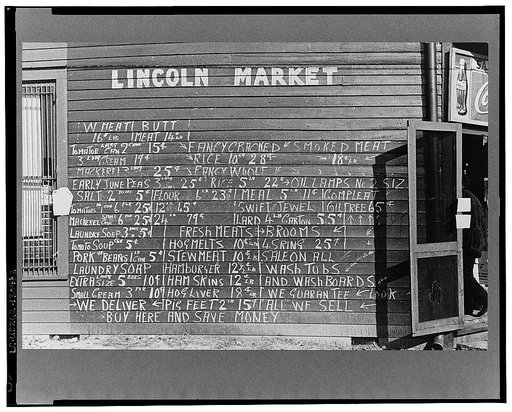 LINCOLN MARKET
W MEAT BUTT
16¢ LB MEAT 14½
TOMATOE CAN 2 15¢ FANCY CRACKED SMOKED MEAT
3 CREAM 19¢ RICE 10 LB 28¢ 18¢ LB
MACKEREL 3 25¢ FANCY WOOLE
EARLY JUNE PEAS 3 25¢ RICE 5 LB 22¢ OIL LAMPS No 2 SIZ
SALT 2 5¢ FLOUR 6 LB 23¢ MEAL 5 LB 11¢ COMPLEAT
TOMATOES 25¢ 12 LB 45¢ SWIFT JEWEL GILTREE 65¢
MACKEREL 6 25¢ 24 LB 79¢ LARD 4 LB CARTONS 55¢
LAUNDRY SOAP 3 5¢ FRESH MEATS BROOMS
TOMATO SOUP 5¢ HOG MELTS 10¢ LB 4 STRING 25¢
PORK BEANS 1 CAN 5¢ STEW MEAT 10¢ LB SALE ON ALL
LAUNDRY SOAP HAMBURGER 12½¢ LB WASH TUBS
EXTRA SIZE 10¢ HAM SKINS 12½ LB AND WASH BOARDS
SMALL CREAM 3 FOR 10¢ HOG LIVER 19¢ LB WE GUARANTEE LOOK
WE DELIVER PIG FEET 2 LB 15¢ ALL WE SELL
BUY HERE AND SAVE MONEY